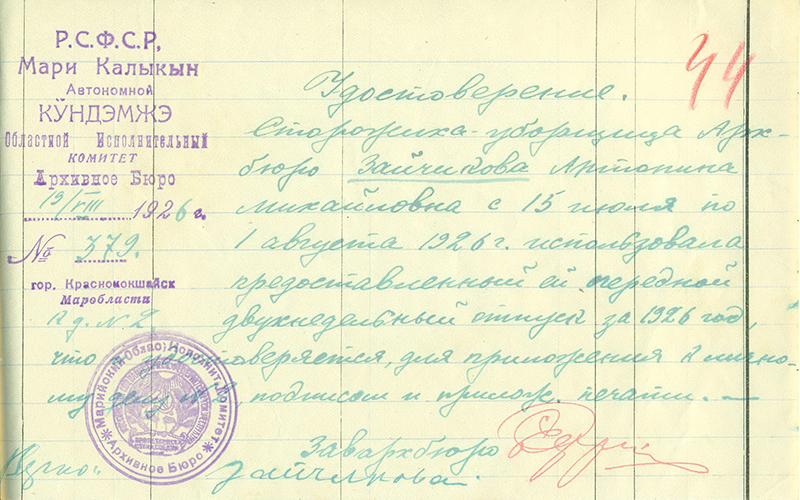 Р.С.Ф.С.Р,
Мари Калыкын
Автономной
КЎНДЭМЖЭ
Областной Исполнительный
КОМИТЕТ
Архивное Бюро
19/VIII 1926 г.
№ 379.
гор. Краснококшайск
Маробласти
К д. № 2
44
Удостоверение.
Сторожиха-уборщица Арх-
бюро Зайчикова Антонина
Михайловна с 15 июля по
1 августа 1926 г. использовала
предоставленный ей очередной
двухнедельный отпуск за 1926 год,
что и удостоверяется, для приложения к лично-
му делу №, подписом и прилож. печати. —
Завархбюро
Зайчикова.
Марийский Област. Исполнит. Комитет
Архивное Бюро